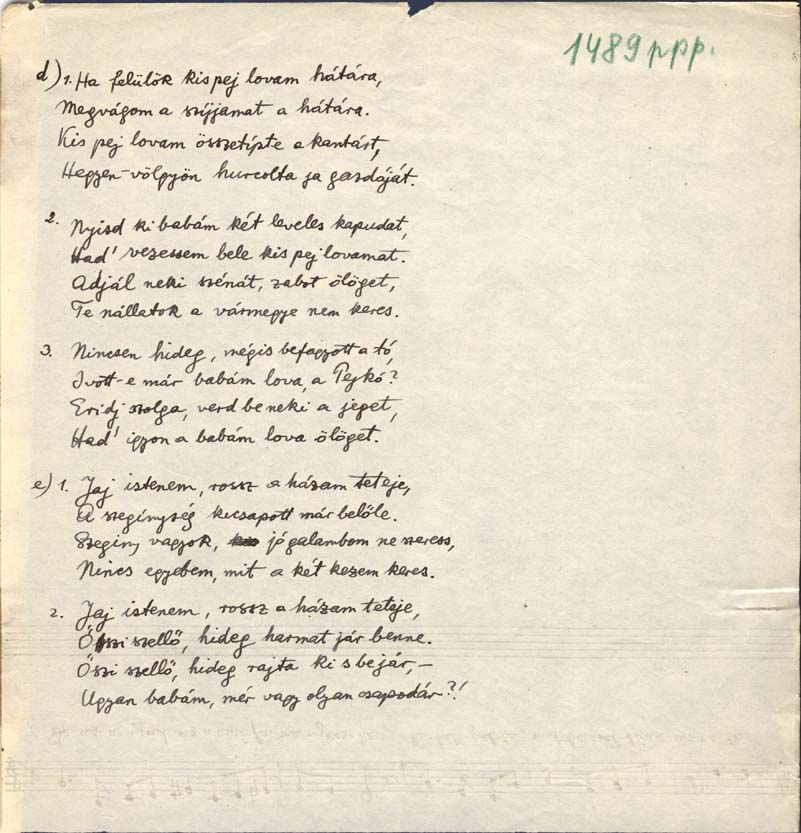 1489 ppp.
d) 1. Ha felülök kis pej lovam hátára,
Megvágom a szíjjamat a hátára.
Kis pej lovam összetípte a kantárt,
Hegyen-völgyön hurcolta ja gazdáját.
2. Nyisd ki babám két leveles kapudat,
Had' vezessem bele kis pej lovamat.
Adjál neki szénát, zabot ölöget,
Te nállatok a vármegye nem keres.
3. Nincsen hideg, mégis befagyott a tó,
Ivott-e már babám lova, a Pejkó?
Eridj szolga, verd be neki a jeget,
Had' igyon a babám lova ölöget.
e) 1. Jaj istenem, rossz a házam teteje,
A szegénység kicsapott már belőle.
Szegíny vagyok, jó galambom ne szeress,
Nincs egyebem, mit a két kezem keres.
2. Jaj istenem, rossz a házam teteje,
Őszi szellő, hideg harmat jár benne.
Őszi szellő, hideg rajta ki s bejár, –
Ugyan babám, mér vagy olyan csapodár?!